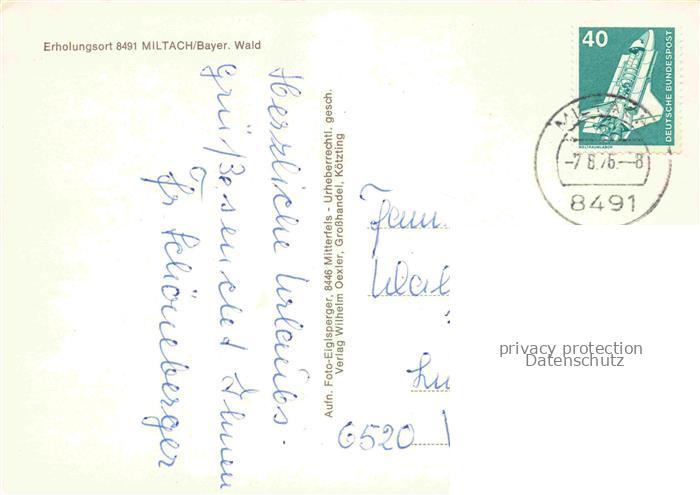 Erholungsort 8491 MILTACH/Bayer. Wald
Herzliche Urlaubs-
grüße sendet Ihnen
Fr. Schöneberger
Aufn. Foto-Eiglsperger, 8446 Mitterfels - Urheberrechtl. gesch.
Verlag Wilhelm Oexler, Großhandel, Kötzting
40
DEUTSCHE BUNDESPOST
WELTRAUMLABOR
MILTACH
-7.8.76.-8
8491
Fam.
6520
privacy protection
Datenschutz